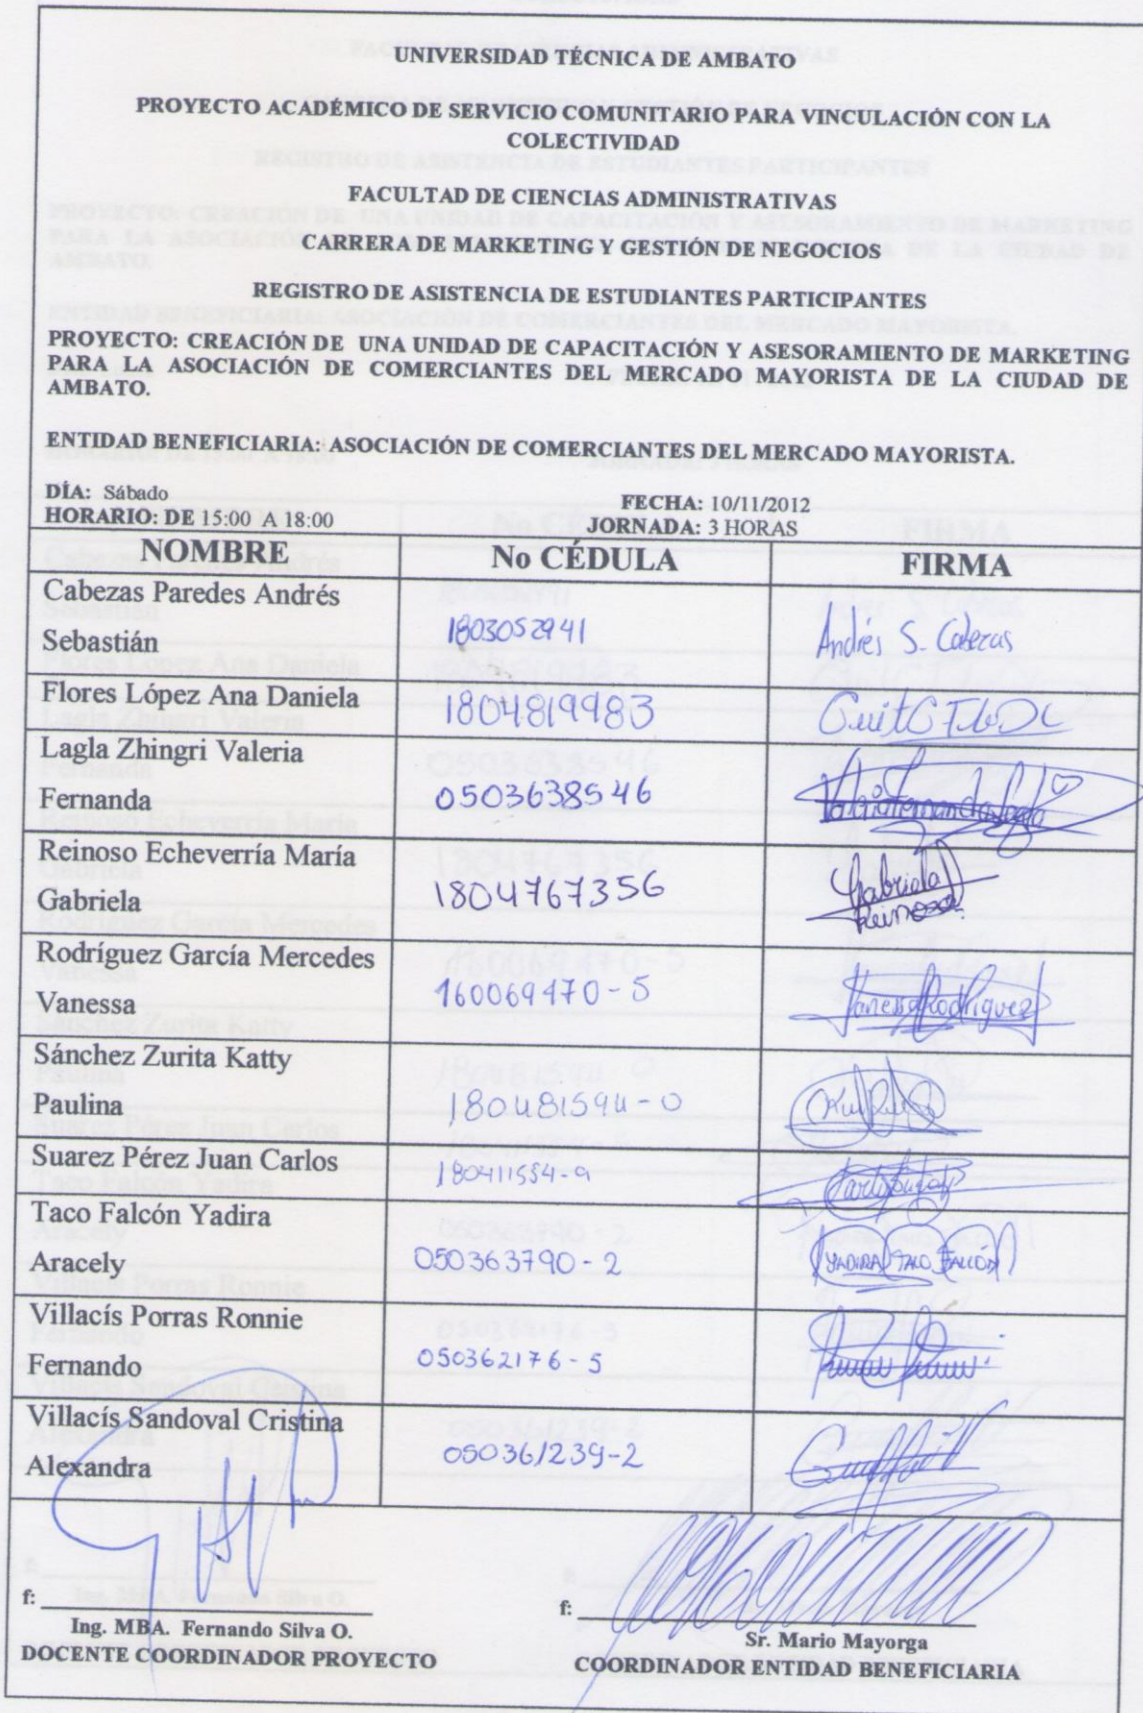 UNIVERSIDAD TÉCNICA DE AMBATO
PROYECTO ACADÉMICO DE SERVICIO COMUNITARIO PARA VINCULACIÓN CON LA
COLECTIVIDAD
FACULTAD DE CIENCIAS ADMINISTRATIVAS
CARRERA DE MARKETING Y GESTIÓN DE NEGOCIOS
REGISTRO DE ASISTENCIA DE ESTUDIANTES PARTICIPANTES
PROYECTO: CREACIÓN DE UNA UNIDAD DE CAPACITACIÓN Y ASESORAMIENTO DE MARKETING
PARA LA ASOCIACIÓN DE COMERCIANTES DEL MERCADO MAYORISTA DE LA CIUDAD DE
AMBATO.
ENTIDAD BENEFICIARIA: ASOCIACIÓN DE COMERCIANTES DEL MERCADO MAYORISTA.
DÍA: Sábado FECHA: 10/11/2012
HORARIO: DE 15:00 A 18:00 JORNADA: 3 HORAS
NOMBRE No CÉDULA FIRMA
Cabezas Paredes Andrés
Sebastián 1803052941 Andrés S. Cabezas
Flores López Ana Daniela 1804819983
Lagla Zhingri Valeria
Fernanda 0503638546
Reinoso Echeverría María
Gabriela 1804767356 Gabriela
Reinoso
Rodríguez García Mercedes
Vanessa 160069470-5 Vanessa Rodriguez
Sánchez Zurita Katty
Paulina 180481594-0
Suarez Pérez Juan Carlos 180411554-9
Taco Falcón Yadira
Aracely 050363790-2 YADIRA TACO FALCÓN
Villacís Porras Ronnie
Fernando 050362176-5
Villacís Sandoval Cristina
Alexandra 050361239-2
f: f:
Ing. MBA. Fernando Silva O. Sr. Mario Mayorga
DOCENTE COORDINADOR PROYECTO COORDINADOR ENTIDAD BENEFICIARIA